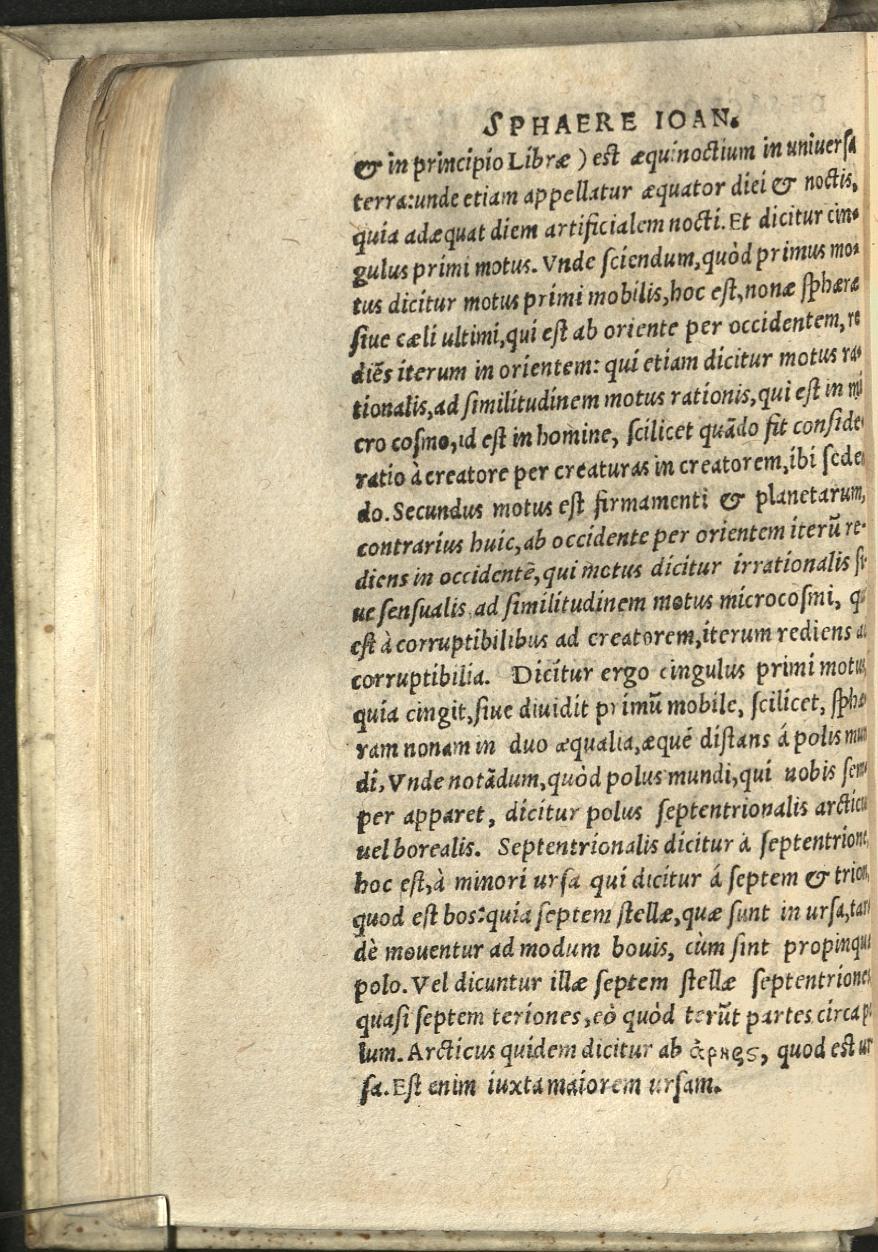 SPHAERE IOAN.
& in principio Libræ) est æquinoctium in uniuersa
terra: unde etiam appellatur æquator diei & noctis,
quia adæquat diem artificialem nocti. Et dicitur cin-
gulus primi motus. Vnde sciendum, quòd primus mo-
tus dicitur motus primi mobilis, hoc est, nonæ sphæræ
siue cæli ultimi, qui est ab oriente per occidentem, re
diēs iterum in orientem: qui etiam dicitur motus ra-
tionalis, ad similitudinem motus rationis, qui est in mi
cro cosmo, id est in homine, scilicet quādo fit conside
ratio à creatore per creaturas in creatorem, ibi sedē
do. Secundus motus est firmamenti & planetarum,
contrarius huic, ab occidente per orientem iterū re-
diens in occidentē, qui motus dicitur irrationalis si
ue sensualis ad similitudinem motus microcosmi,
est à corruptibilibus ad creatorem, iterum rediens
corruptibilia. Dicitur ergo cingulus primi motus
quia cingit, siue diuidit primū mobile, scilicet, sphæ
ram nonam in duo æqualia, æquè distans á polis mun
di, Vnde notādum, quòd polus mundi, qui nobis sem
per apparet, dicitur polus septentrionalis arcticus
uel borealis. Septentrionalis dicitur à septentrione,
hoc est, à minori ursa qui dicitur á septem & trion,
quod est bos: quia septem stellæ, quæ sunt in ursa, tar
dè mouentur ad modum bouis, cùm sint propinquæ
polo. Vel dicuntur illæ septem stellæ septentriones
quasi septem teriones, eò quòd terūt partes circa po
lum. Arcticus quidem dicitur ab quod est ur
sa. Est enim iuxta maiorem ursam.